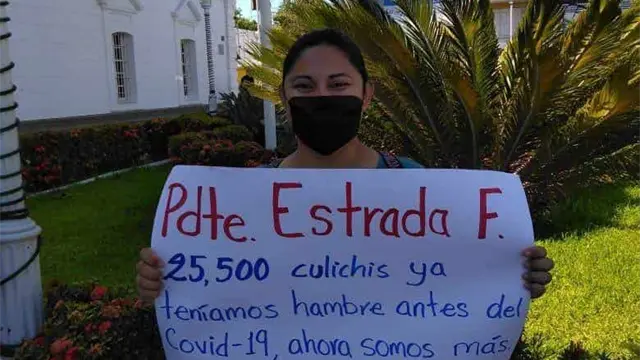 Pdte. Estrada F.
25,500 culichis ya
teníamos hambre antes del
Covid-19, ahora somos más.